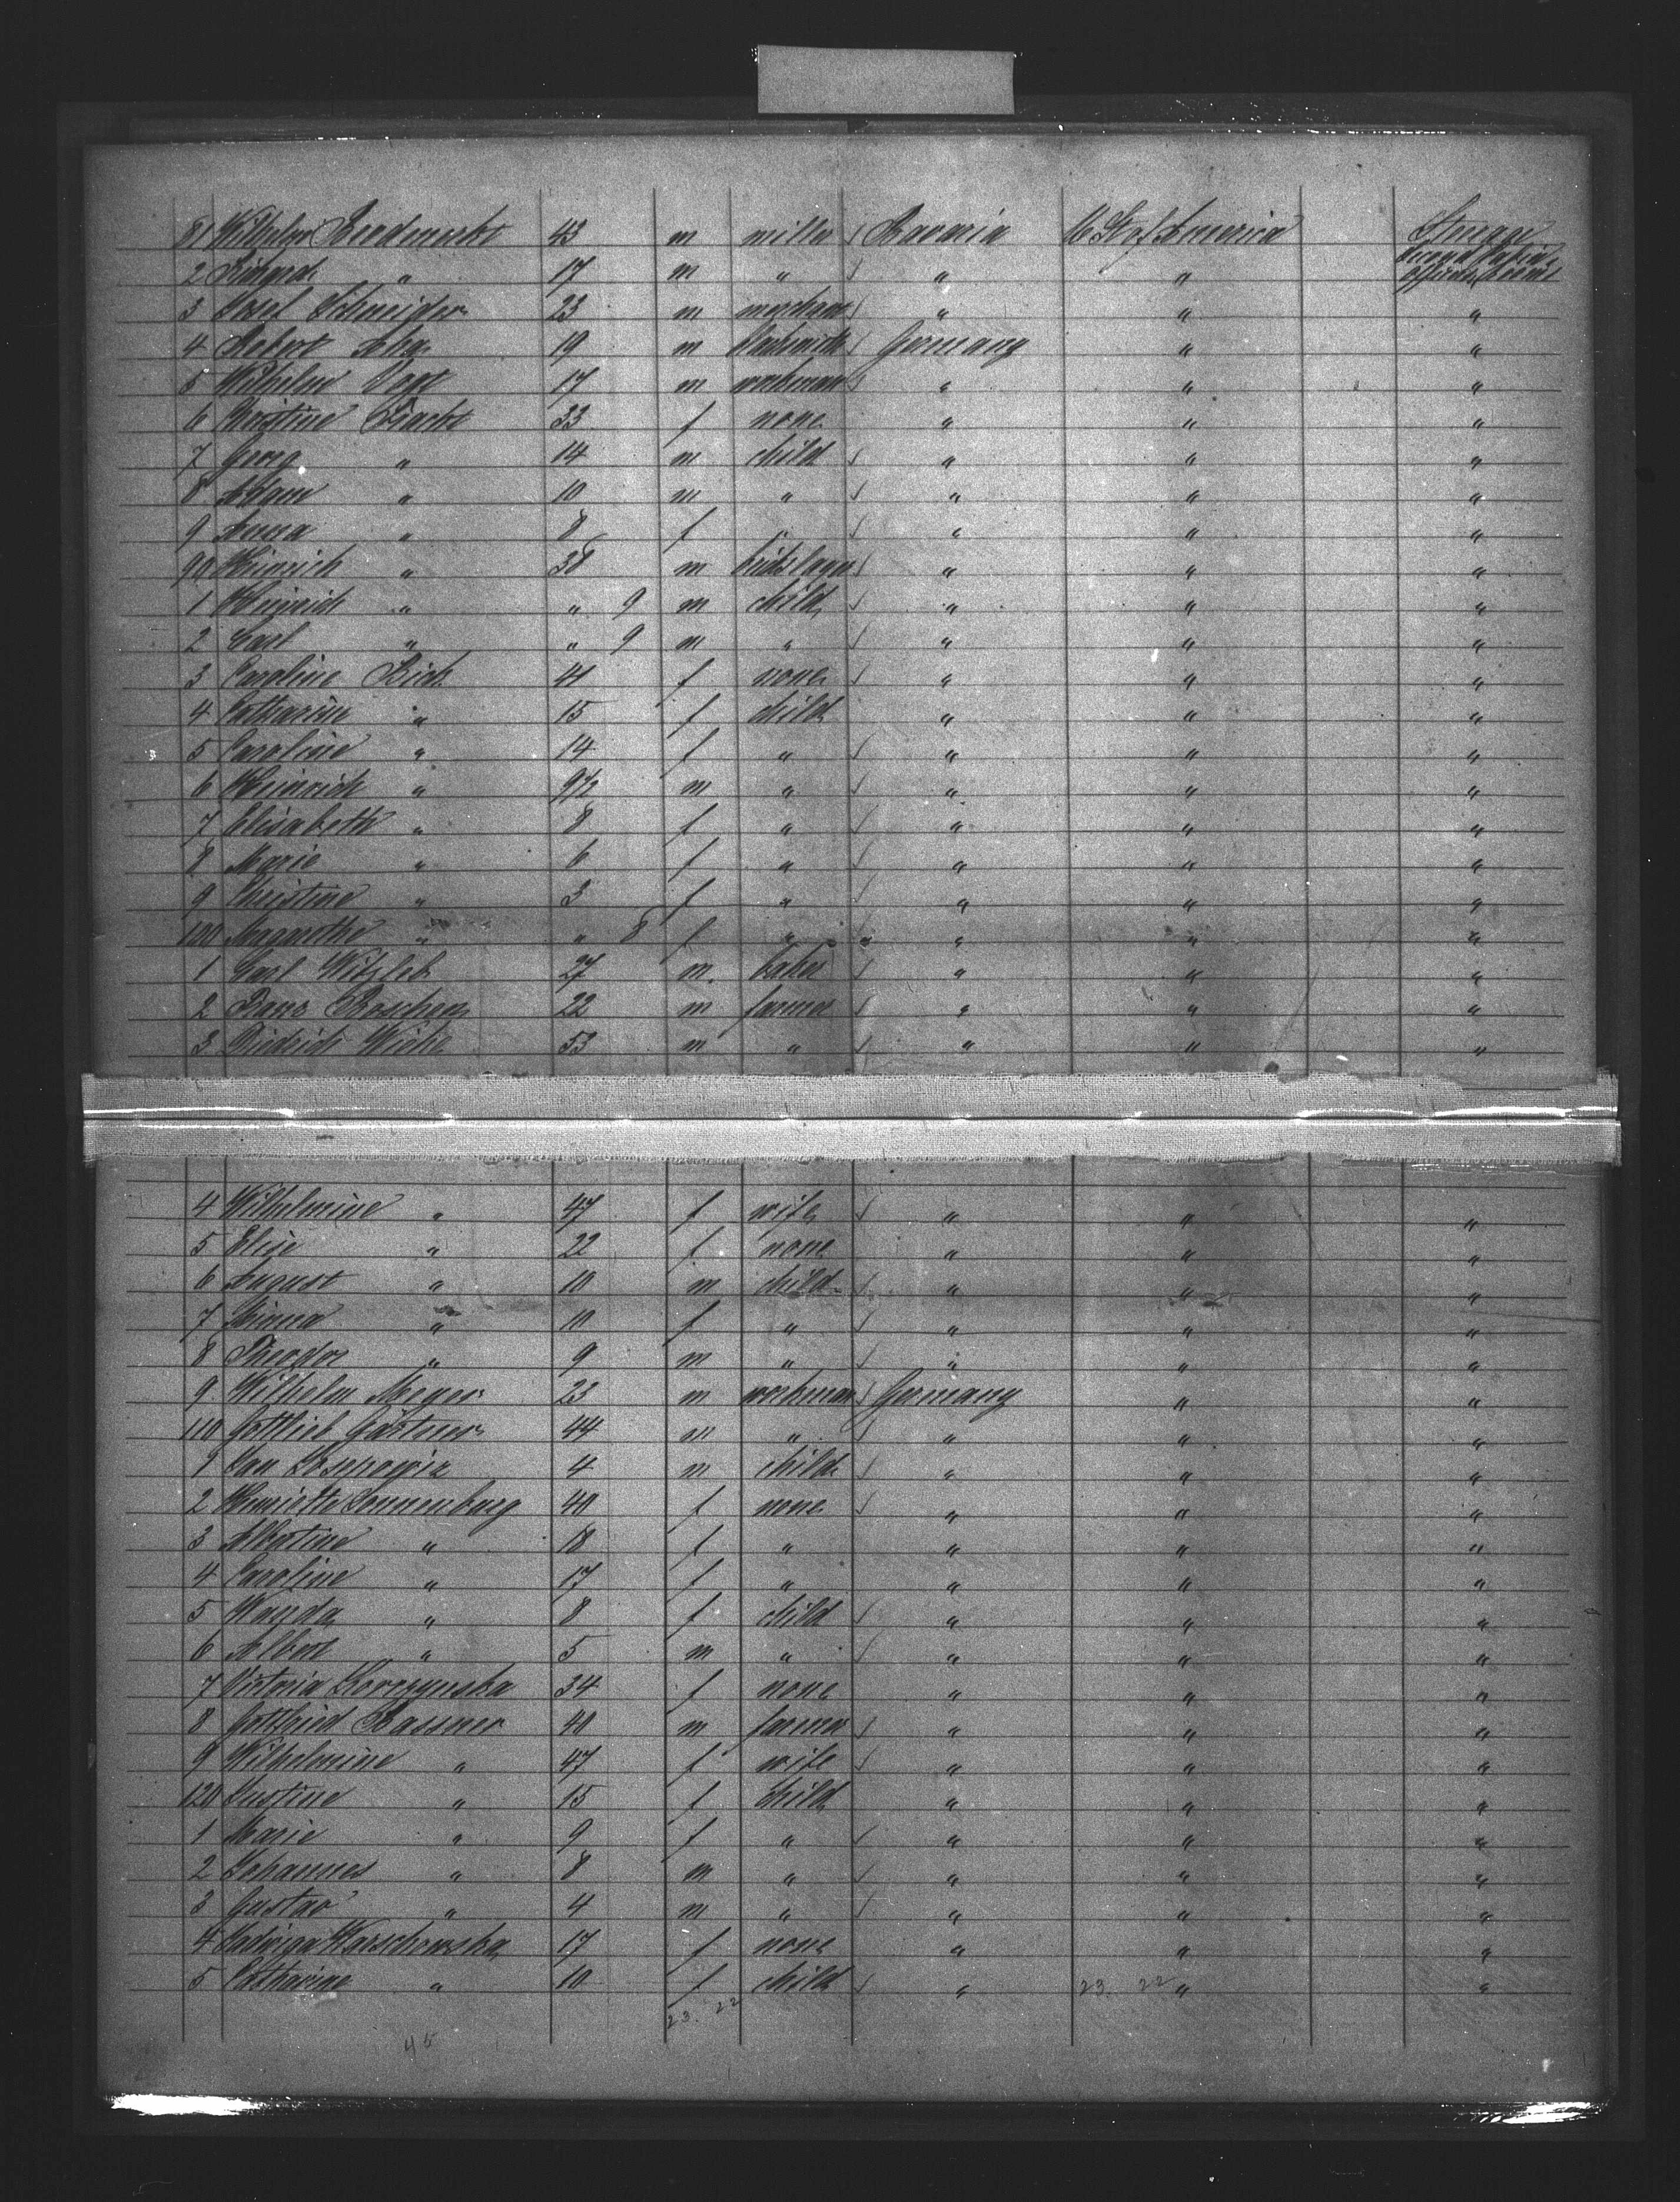 81 Wilhelm 43 m miller Bavaria U St of America Steerage
2 " 17 m " " " second Cabin
3 Josef Schneider 23 m merchant " " "
4 Robert 19 m blacksmith Germany " "
5 Wilhelm Vogt 17 m workman " " "
6 Christine 33 f none " " "
7 Georg " 14 m child " " "
8 Adam " 10 m " " " "
9 Anna " 8 f " " " "
90 Heinrich " 38 m " " "
1 Heinrich " " 9 m child " " "
2 Carl " " 9 m " " " "
3 Caroline 41 f none " " "
4 Catharine " 15 f child " " "
5 Caroline " 14 f " " " "
6 Heinrich " 9½ m " " " "
7 Elisabeth " 8 f " " " "
8 Marie " 6 f " " " "
9 Christine " 3 f " " " "
100 Margarethe " " 8 f " " " "
1 Carl Witzleb 27 m baker " " "
2 Boschen 22 m farmer " " "
3 Diedrich Wiehe 53 m " " " "
4 Wilhelmine " 47 f wife " " "
5 Elise " 22 f none " " "
6 August " 10 m child " " "
7 Minna " 10 f " " " "
8 Theodor " 9 m " " " "
9 Wilhelm Meyer 23 m workman Germany " "
110 Gottlieb Gärtner 44 m " " " "
1 Jan 4 m child " " "
2 Henriette Sonnenburg 40 f none " " "
3 Albertine " 18 f " " " "
4 Caroline " 17 f " " " "
5 Wanda " 8 f child " " "
6 Albert " 5 m " " " "
7 Victoria 34 f none " " "
8 Gottfried Bassner 40 m farmer " " "
9 Wilhelmine " 47 f wife " " "
120 Justine " 15 f child " " "
1 Marie " 9 f " " " "
2 Johannes " 8 m " " " "
3 Gustav " 4 m " " " "
4 Hedwiga Warschowska 17 f none " " "
5 Catharine " 10 f child " 23. 22 " "
23. 22
45